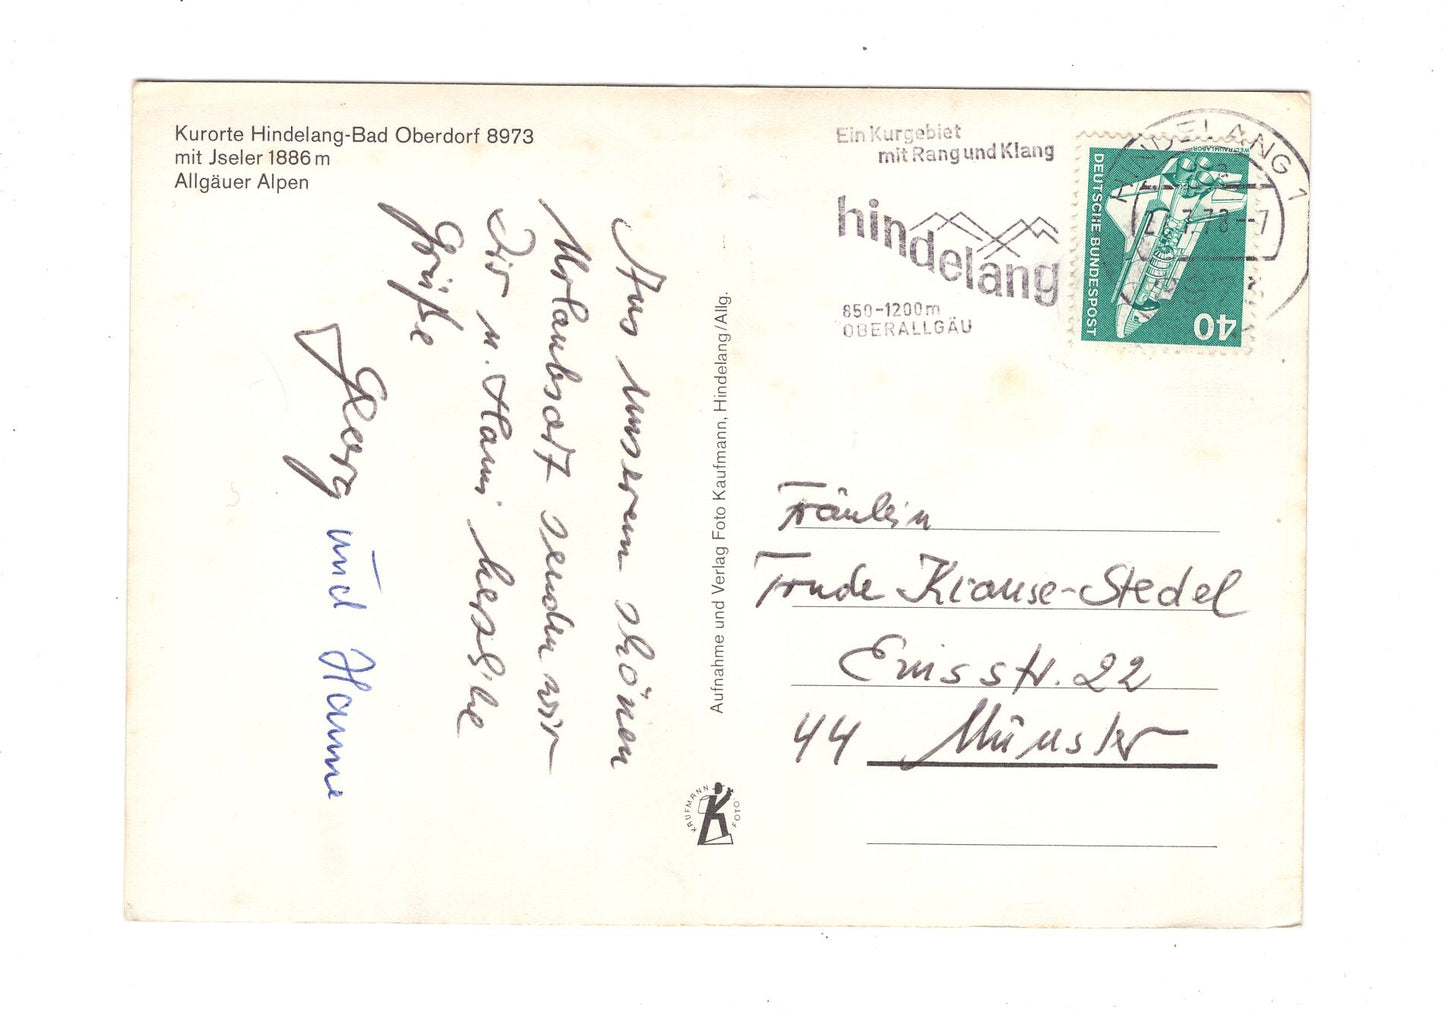 Kurorte Hindelang-Bad Oberdorf 8973
mit Jseler 1886 m
Allgäuer Alpen
Aus unserem schönen
Urlaubsort senden wir
Dir u. Hanni herzliche
Grüße
Georg
und Hanne
Aufnahme und Verlag Foto Kaufmann, Hindelang/Allg.
KAUFMANN FOTO
Ein Kurgebiet
mit Rang und Klang
hindelang
850-1200m
OBERALLGÄU
HINDELANG 1
.78--7
WELTRAUMLABOR
DEUTSCHE BUNDESPOST
40
Fräulein
Trude Krause-Stedel
Emsstr. 22
44 Münster